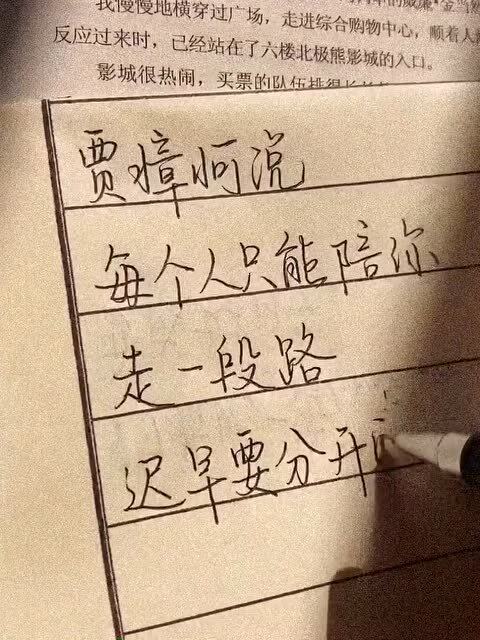 我慢慢地横穿过广场，走进综合购物中心，顺着人
反应过来时，已经站在了六楼北极熊影城的入口。
影城很热闹，买票的队伍排得长长
贾樟柯说
每个人只能陪你
走一段路
迟早要分开